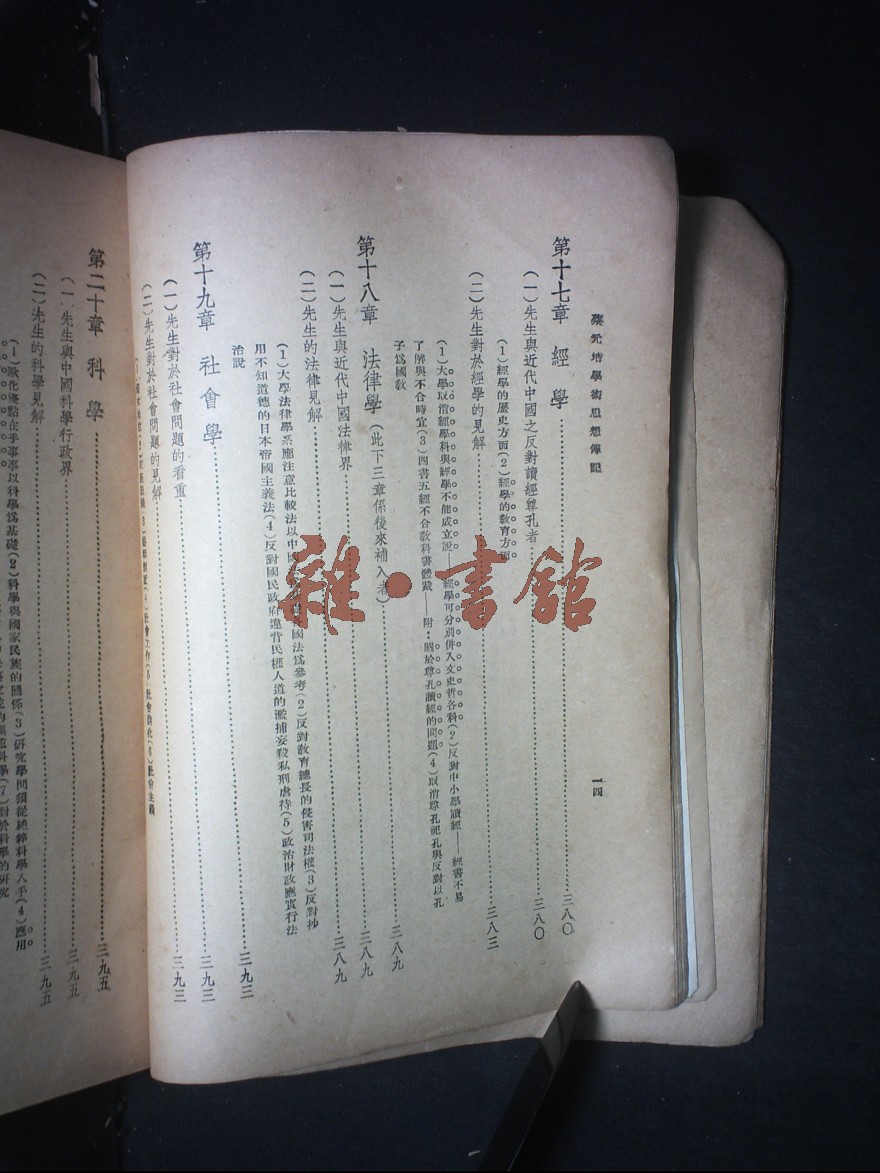 蔡元培學術思想傳記
一四
第十七章 經學……三八〇
(一)先生與近代中國之反對讀經尊孔者……三八〇
(1)經學的歷史方面(2)經學的教育方面
(二)先生對於經學的見解……三八三
(1)大學以消經學科與經學不能成立說——經學可分別併入文史哲各科(2)反對中小學讀經——經書不易
了解與不合時宜(3)四書五經不合教科書體裁——附:關於尊孔讀經的問題(4)取消尊孔祀孔與反對以孔
子爲國教
第十八章 法律學(此下三章係後來補入者)……三八九
(一)先生與近代中國法律界……三八九
(二)先生的法律見解……三八九
(1)大學法律學系應注意比較法以中國國法爲參考(2)反對教育總長的侵害司法權(3)反對抄
用不知道德的日本帝國主義法(4)反對國民政府違背民權人道的濫捕妄殺私刑虐待(5)政治財政應實行法
治說
第十九章 社會學……三九三
(一)先生對於社會問題的看重……三九三
(二)先生對於社會問題的見解……三九三
社會工作(5)社會教化(6)社會主義
第二十章 科學……三九五
(一)先生與中國科學行政界……三九五
(二)先生的科學見解……三九五
(1)歐化優點在乎事事以科學爲基礎(2)科學與國家民族的關係(3)研究學問須從純粹科學入手(4)應用
科學(7)對於科學的研究
雜·書館